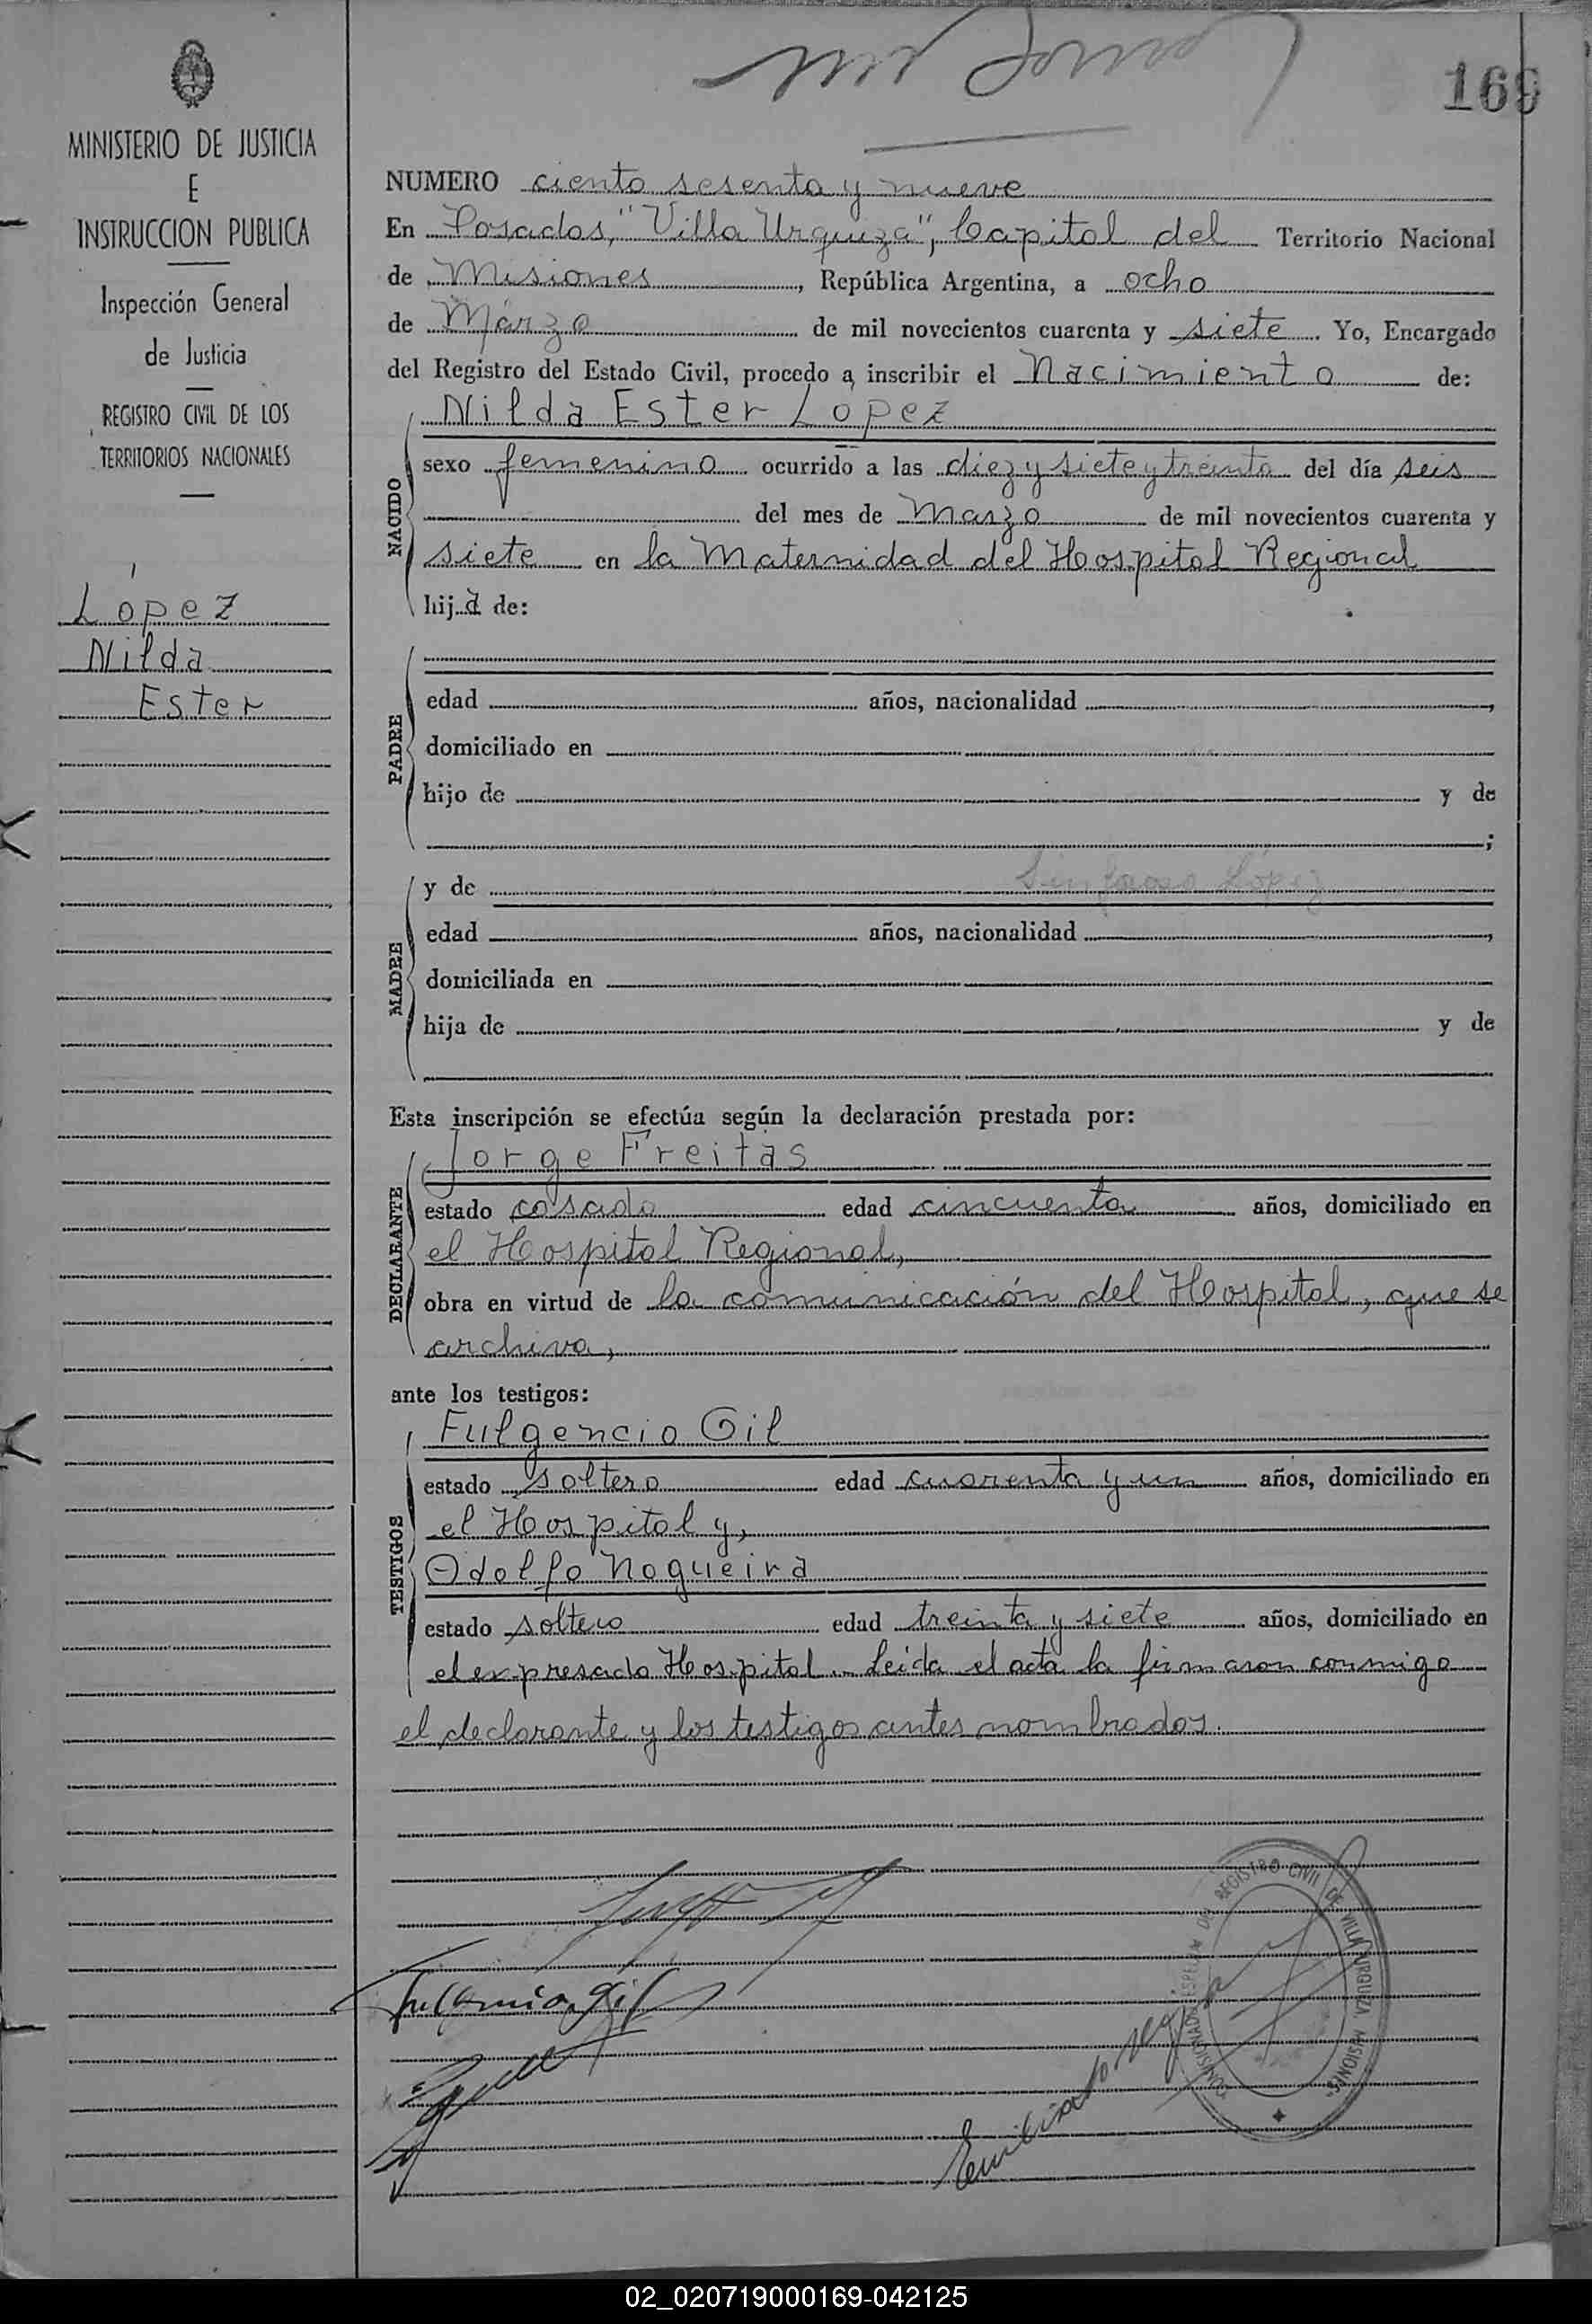 169
MINISTERIO DE JUSTICIA
E
INSTRUCCION PUBLICA
Inspección General
de Justicia
REGISTRO CIVIL DE LOS
TERRITORIOS NACIONALES
López
Nilda
Ester
NUMERO ciento sesenta y nueve
En Posadas, "Villa Urquiza", Capital del Territorio Nacional
de Misiones, República Argentina, a ocho
de Márzo de mil novecientos cuarenta y siete. Yo, Encargado
del Registro del Estado Civil, procedo a inscribir el Nacimiento de:
NACIDO
Nilda Ester López
sexo femenino ocurrido a las diez y siete y treinta del día seis
del mes de Marzo de mil novecientos cuarenta y
siete en la Maternidad del Hospital Regional
hija de:
PADRE
edad años, nacionalidad ,
domiciliado en
hijo de y de
;
MADRE
y de López
edad años, nacionalidad ,
domiciliada en
hija de y de
Esta inscripción se efectúa según la declaración prestada por:
DECLARANTE
Jorge Freitas
estado casado edad cincuenta años, domiciliado en
el Hospital Regional,
obra en virtud de la comunicación del Hospital, que se
archiva,
ante los testigos:
TESTIGOS
Fulgencio Gil
estado soltero edad cuarenta y un años, domiciliado en
el Hospital y,
Odolfo Nogueira
estado soltero edad treinta y siete años, domiciliado en
el expresado Hospital.- Leida el acta la firmaron conmigo
el declarante y los testigos antes nombrados.
Fulgencio Gil
REGISTRO CIVIL DE VILLA URQUIZA. MISIONES
02_020719000169-042125